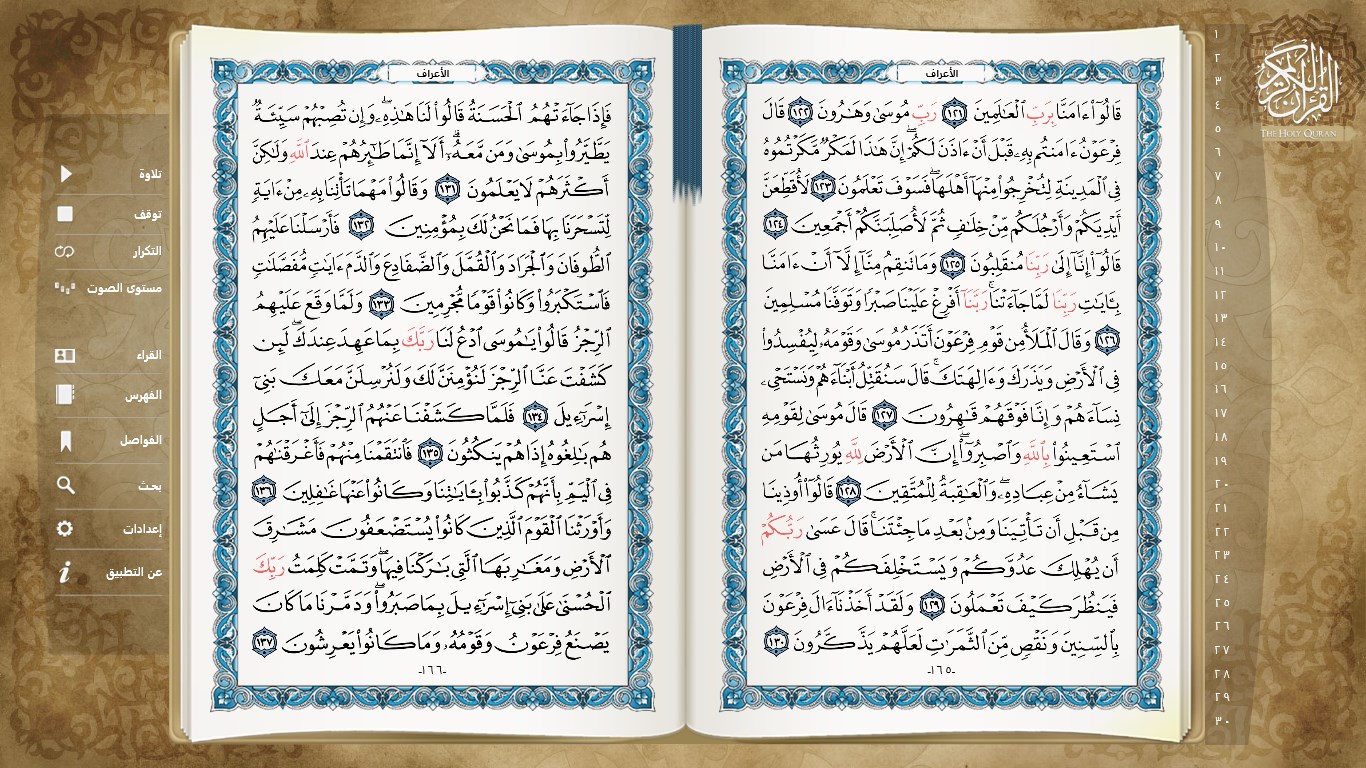 الأعراف
قَالُوٓا۟ ءَامَنَّا بِرَبِّ ٱلْعَـٰلَمِينَ ١٢١ رَبِّ مُوسَىٰ وَهَـٰرُونَ ١٢٢ قَالَ
فِرْعَوْنُ ءَامَنتُم بِهِۦ قَبْلَ أَنْ ءَاذَنَ لَكُمْ ۖ إِنَّ هَـٰذَا لَمَكْرٌ مَّكَرْتُمُوهُ
فِى ٱلْمَدِينَةِ لِتُخْرِجُوا۟ مِنْهَآ أَهْلَهَا ۖ فَسَوْفَ تَعْلَمُونَ ١٢٣ لَأُقَطِّعَنَّ
أَيْدِيَكُمْ وَأَرْجُلَكُم مِّنْ خِلَـٰفٍ ثُمَّ لَأُصَلِّبَنَّكُمْ أَجْمَعِينَ ١٢٤
قَالُوٓا۟ إِنَّآ إِلَىٰ رَبِّنَا مُنقَلِبُونَ ١٢٥ وَمَا تَنقِمُ مِنَّآ إِلَّآ أَنْ ءَامَنَّا
بِـَٔايَـٰتِ رَبِّنَا لَمَّا جَآءَتْنَا ۚ رَبَّنَآ أَفْرِغْ عَلَيْنَا صَبْرًا وَتَوَفَّنَا مُسْلِمِينَ
١٢٦ وَقَالَ ٱلْمَلَأُ مِن قَوْمِ فِرْعَوْنَ أَتَذَرُ مُوسَىٰ وَقَوْمَهُۥ لِيُفْسِدُوا۟
فِى ٱلْأَرْضِ وَيَذَرَكَ وَءَالِهَتَكَ ۚ قَالَ سَنُقَتِّلُ أَبْنَآءَهُمْ وَنَسْتَحْىِۦ
نِسَآءَهُمْ وَإِنَّا فَوْقَهُمْ قَـٰهِرُونَ ١٢٧ قَالَ مُوسَىٰ لِقَوْمِهِ
ٱسْتَعِينُوا۟ بِٱللَّهِ وَٱصْبِرُوٓا۟ ۖ إِنَّ ٱلْأَرْضَ لِلَّهِ يُورِثُهَا مَن
يَشَآءُ مِنْ عِبَادِهِۦ ۖ وَٱلْعَـٰقِبَةُ لِلْمُتَّقِينَ ١٢٨ قَالُوٓا۟ أُوذِينَا
مِن قَبْلِ أَن تَأْتِيَنَا وَمِنۢ بَعْدِ مَا جِئْتَنَا ۚ قَالَ عَسَىٰ رَبُّكُمْ
أَن يُهْلِكَ عَدُوَّكُمْ وَيَسْتَخْلِفَكُمْ فِى ٱلْأَرْضِ
فَيَنظُرَ كَيْفَ تَعْمَلُونَ ١٢٩ وَلَقَدْ أَخَذْنَآ ءَالَ فِرْعَوْنَ
بِٱلسِّنِينَ وَنَقْصٍ مِّنَ ٱلثَّمَرَٰتِ لَعَلَّهُمْ يَذَّكَّرُونَ ١٣٠
-١٦٥-
الأعراف
فَإِذَا جَآءَتْهُمُ ٱلْحَسَنَةُ قَالُوا۟ لَنَا هَـٰذِهِۦ ۖ وَإِن تُصِبْهُمْ سَيِّئَةٌ
يَطَّيَّرُوا۟ بِمُوسَىٰ وَمَن مَّعَهُۥٓ ۗ أَلَآ إِنَّمَا طَـٰٓئِرُهُمْ عِندَ ٱللَّهِ وَلَـٰكِنَّ
أَكْثَرَهُمْ لَا يَعْلَمُونَ ١٣١ وَقَالُوا۟ مَهْمَا تَأْتِنَا بِهِۦ مِنْ ءَايَةٍ
لِّتَسْحَرَنَا بِهَا فَمَا نَحْنُ لَكَ بِمُؤْمِنِينَ ١٣٢ فَأَرْسَلْنَا عَلَيْهِمُ
ٱلطُّوفَانَ وَٱلْجَرَادَ وَٱلْقُمَّلَ وَٱلضَّفَادِعَ وَٱلدَّمَ ءَايَـٰتٍ مُّفَصَّلَـٰتٍ
فَٱسْتَكْبَرُوا۟ وَكَانُوا۟ قَوْمًا مُّجْرِمِينَ ١٣٣ وَلَمَّا وَقَعَ عَلَيْهِمُ
ٱلرِّجْزُ قَالُوا۟ يَـٰمُوسَى ٱدْعُ لَنَا رَبَّكَ بِمَا عَهِدَ عِندَكَ ۖ لَئِن
كَشَفْتَ عَنَّا ٱلرِّجْزَ لَنُؤْمِنَنَّ لَكَ وَلَنُرْسِلَنَّ مَعَكَ بَنِىٓ
إِسْرَٰٓءِيلَ ١٣٤ فَلَمَّا كَشَفْنَا عَنْهُمُ ٱلرِّجْزَ إِلَىٰٓ أَجَلٍ
هُم بَـٰلِغُوهُ إِذَا هُمْ يَنكُثُونَ ١٣٥ فَٱنتَقَمْنَا مِنْهُمْ فَأَغْرَقْنَـٰهُمْ
فِى ٱلْيَمِّ بِأَنَّهُمْ كَذَّبُوا۟ بِـَٔايَـٰتِنَا وَكَانُوا۟ عَنْهَا غَـٰفِلِينَ ١٣٦
وَأَوْرَثْنَا ٱلْقَوْمَ ٱلَّذِينَ كَانُوا۟ يُسْتَضْعَفُونَ مَشَـٰرِقَ
ٱلْأَرْضِ وَمَغَـٰرِبَهَا ٱلَّتِى بَـٰرَكْنَا فِيهَا ۖ وَتَمَّتْ كَلِمَتُ رَبِّكَ
ٱلْحُسْنَىٰ عَلَىٰ بَنِىٓ إِسْرَٰٓءِيلَ بِمَا صَبَرُوا۟ ۖ وَدَمَّرْنَا مَا كَانَ
يَصْنَعُ فِرْعَوْنُ وَقَوْمُهُۥ وَمَا كَانُوا۟ يَعْرِشُونَ ١٣٧
-١٦٦-
القرآن الكريم
THE HOLY QURAN
١
٢
٣
٤
٥
٦
٧
٨
٩
١٠
١١
١٢
١٣
١٤
١٥
١٦
١٧
١٨
١٩
٢٠
٢١
٢٢
٢٣
٢٤
٢٥
٢٦
٢٧
٢٨
٢٩
٣٠
تلاوة
توقف
التكرار
مستوى الصوت
القراء
الفهرس
الفواصل
بحث
إعدادات
عن التطبيق